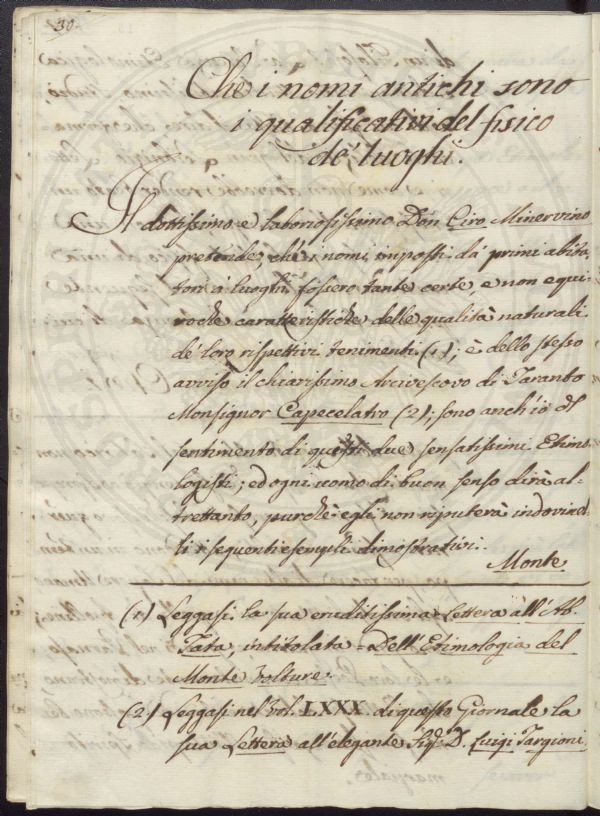 30
Che i nomi antichi sono
i qualificativi del fisico
de' luoghi.
Il dottissimo e laboriosissimo Don Ciro Minervino
pretende, che i nomi imposti da' primi abita-
tori a' luoghi, fossero tante certe, e non equi-
voche caratteristiche delle qualità naturali
de' loro rispettivi tenimenti (1); è dello stesso
avviso il chiarissimo Arcivescovo di Taranto
Monsignor Capecelatro (2); sono anch'io del
sentimento di questi due sensatissimi Etimo-
logisti; ed ogni uomo di buon senso dirà al-
trettanto, purchè egli non riputerà indovinel-
li i seguenti esempli dimostrativi.
Monte
(1) Leggasi la sua eruditissima Lettera all'Ab.
Tata, intitolata = Dell'Etimologia del
Monte Volture.
(2) Leggasi nel Vol. LXXX. di questo Giornale la
sua Lettera all'elegante Sig.r D. Luigi Targioni,